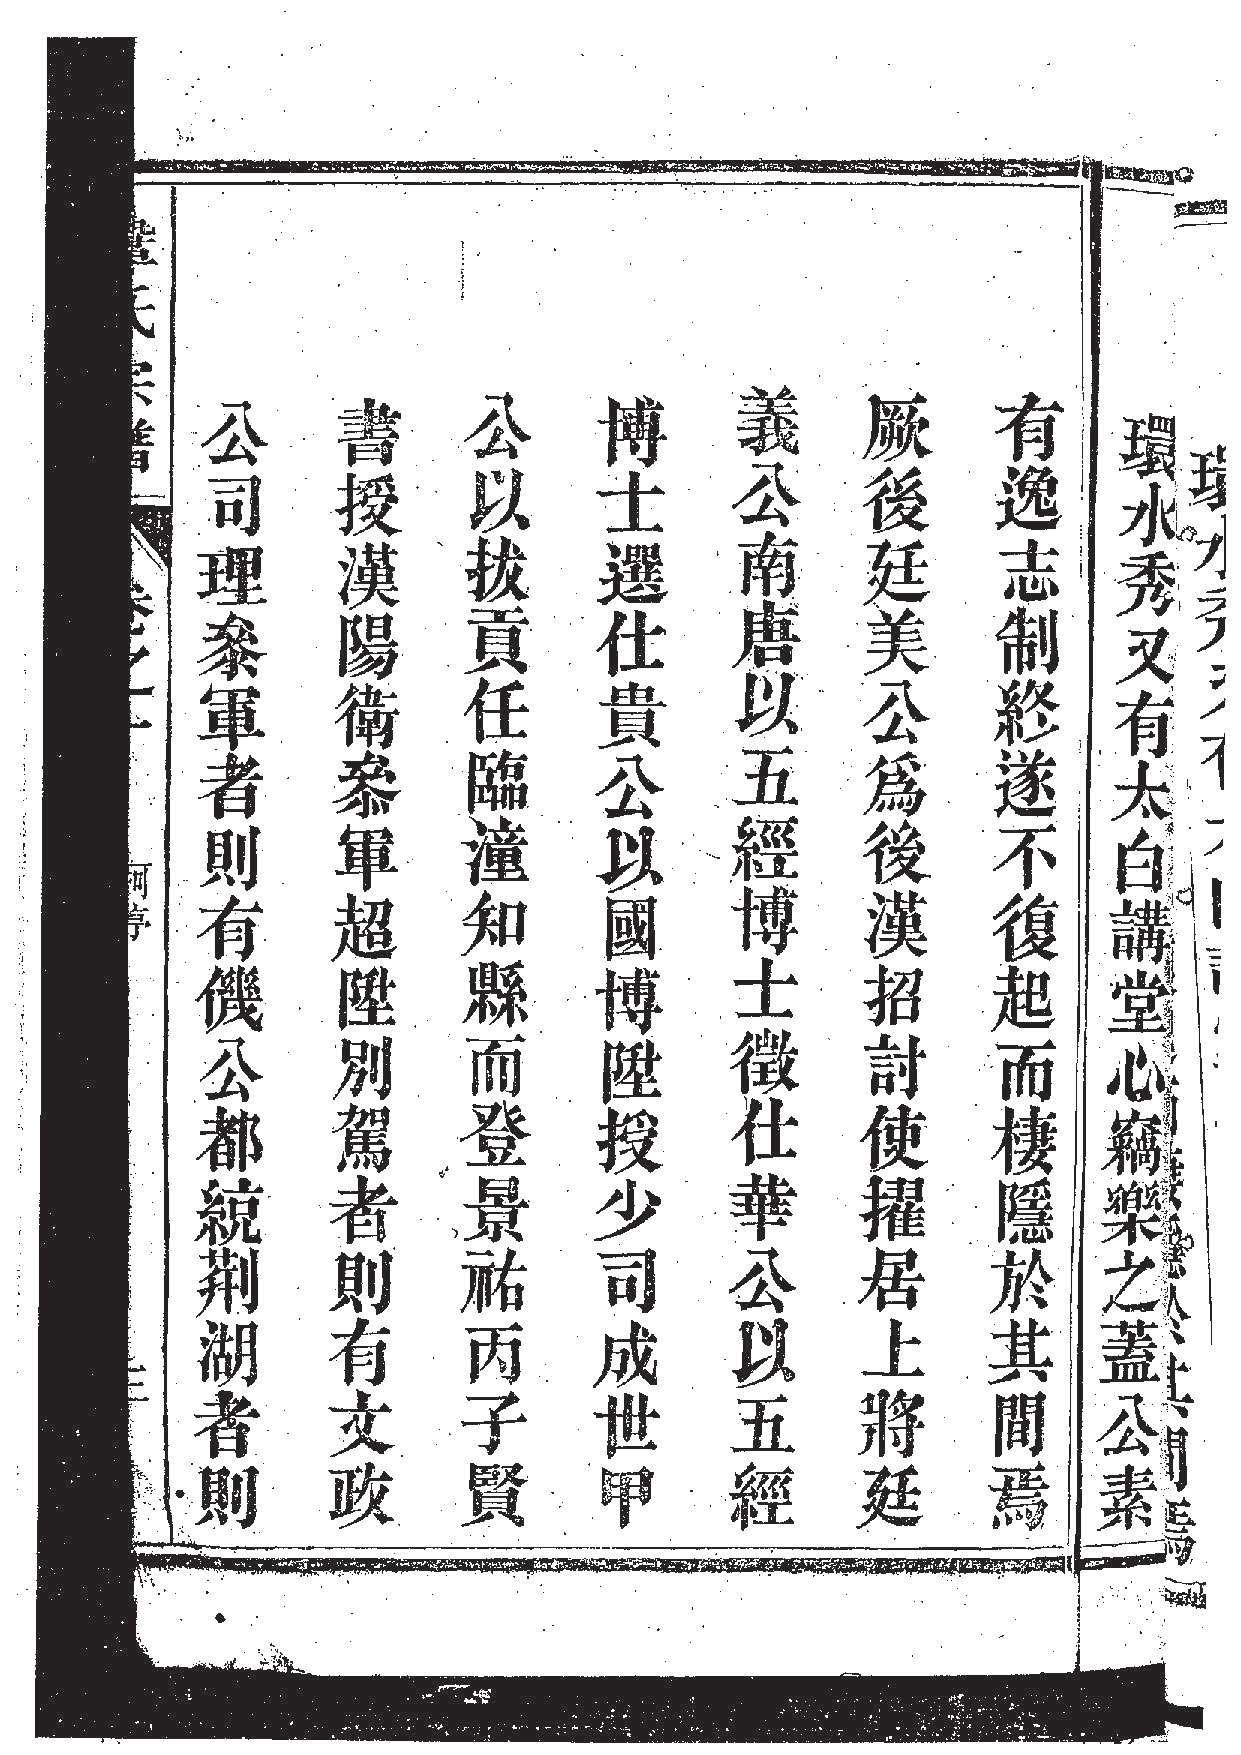 環水秀又有太白講堂心竊樂之蓋公素
有逸志制終遂不復起而棲隱於其間焉
厥後廷美公爲後漢招討使擢居上將廷
義公南唐以五經博士徵仕華公以五經
博士選仕貴公以國博陞授少司成世甲
公以拔貢任臨潼知縣而登景祐丙子賢
書授漢陽衛叅軍超陞別駕者則有文政
公司理叅軍者則有僟公都統荊湖者則
氏宗譜
卷之